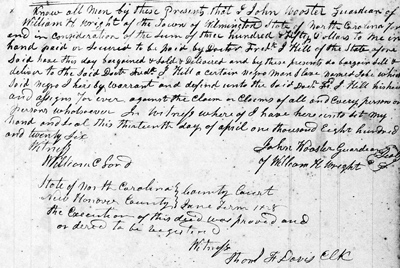 Know all Men by these Presents that I John Wooster Guardian of
William H Wright of the Town of Wilmington State of North Carolina for
and in consideration of the Sum of three hundred & fifty Dollars to me in
hand paid or Secured to be paid by Doctor Fredk J Hill of the State afore
Said have this day bargained & Sold & delivered and by these presents do bargain Sell &
deliver to the Said Doct Fredk J Hill a certain negro Man Slave named
Said negro I he by warrant and defend unto the Said Doct Fr J Hill his heirs
and assigns for ever against the Claim or Claims of all and Every person or
persons whatsoever In Witness where of I have hereunto set my
hand and Seal this thirteenth day of april one thousand Eight hundred
and twenty Six
John Wooster Guardian Seal
Witness of William H Wright
William C Lord
State of North Carolina County Court
New Hanover County June Term
The Execution of this deed was proved and
ordered to be registered
Witness
Thos F Davis Clk